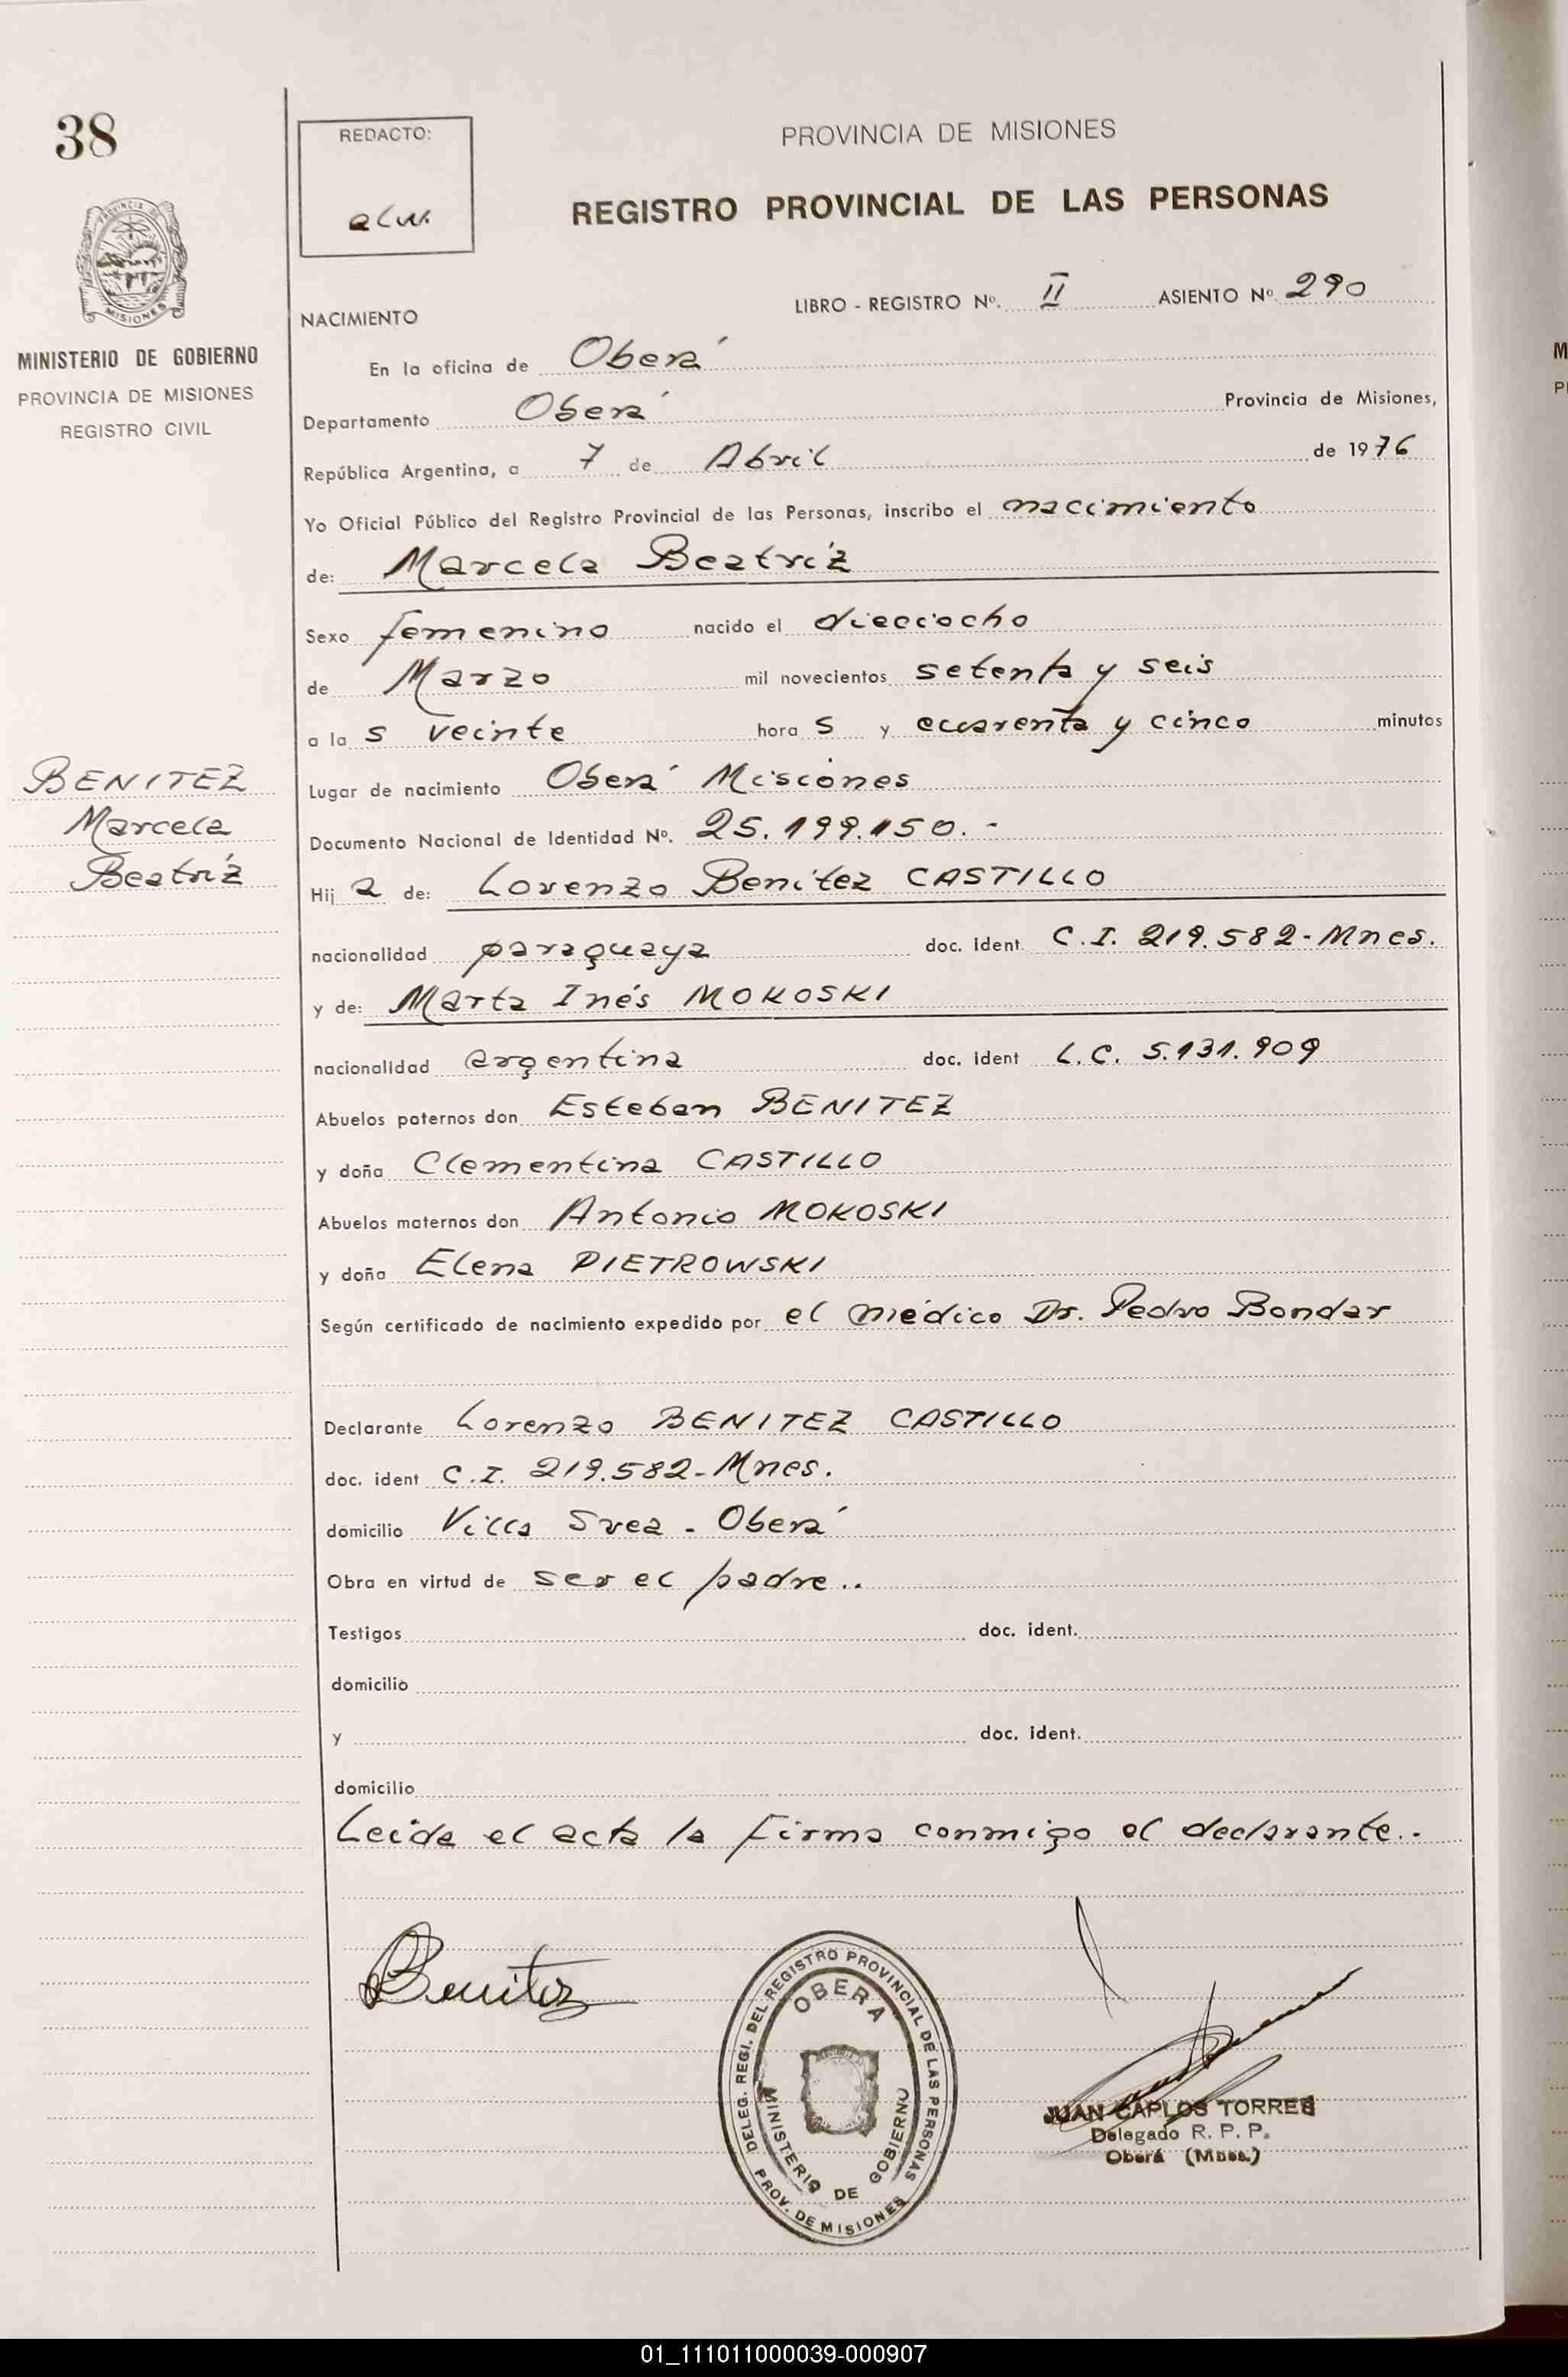 38
REDACTO:
PROVINCIA DE MISIONES
REGISTRO PROVINCIAL DE LAS PERSONAS
MISIONES
MINISTERIO DE GOBIERNO
PROVINCIA DE MISIONES
REGISTRO CIVIL
LIBRO - REGISTRO Nº. II ASIENTO Nº. 290
NACIMIENTO
En la oficina de Oberá
Departamento Oberá Provincia de Misiones,
República Argentina, a 7 de Abril de 1976
Yo Oficial Público del Registro Provincial de las Personas, inscribo el nacimiento
de: Marcela Beatríz
Sexo femenino nacido el dieciocho
de Marzo mil novecientos setenta y seis
a la s veinte hora s y cuarenta y cinco minutos
BENITEZ
Marcela
Beatríz
Lugar de nacimiento Oberá Misiones
Documento Nacional de Identidad Nº. 25.199.150.-
Hij a de: Lorenzo Benítez CASTILLO
nacionalidad paraguaya doc. ident. C.I. 219.582-Mnes.
y de: Marta Inés MOKOSKI
nacionalidad argentina doc. ident L.C. 5.131.909
Abuelos paternos don Esteban BENITEZ
y doña Clementina CASTILLO
Abuelos maternos don Antonio MOKOSKI
y doña Elena PIETROWSKI
Según certificado de nacimiento expedido por el médico Dr. Pedro Bondar
Declarante Lorenzo BENITEZ CASTILLO
doc. ident C.I. 219.582-Mnes.
domicilio Villa Svea - Oberá
Obra en virtud de ser el padre..
Testigos doc. ident.
domicilio
y doc. ident.
domicilio
Leida el acta la firma conmigo el declarante.-
Benitez
DELEG. REGI. DEL REGISTRO PROVINCIAL DE LAS PERSONAS
OBERA
MINISTERIO DE GOBIERNO
PROV. DE MISIONES
JUAN CARLOS TORRES
Delegado R. P. P.
Oberá (Mnes.)
01_111011000039-000907